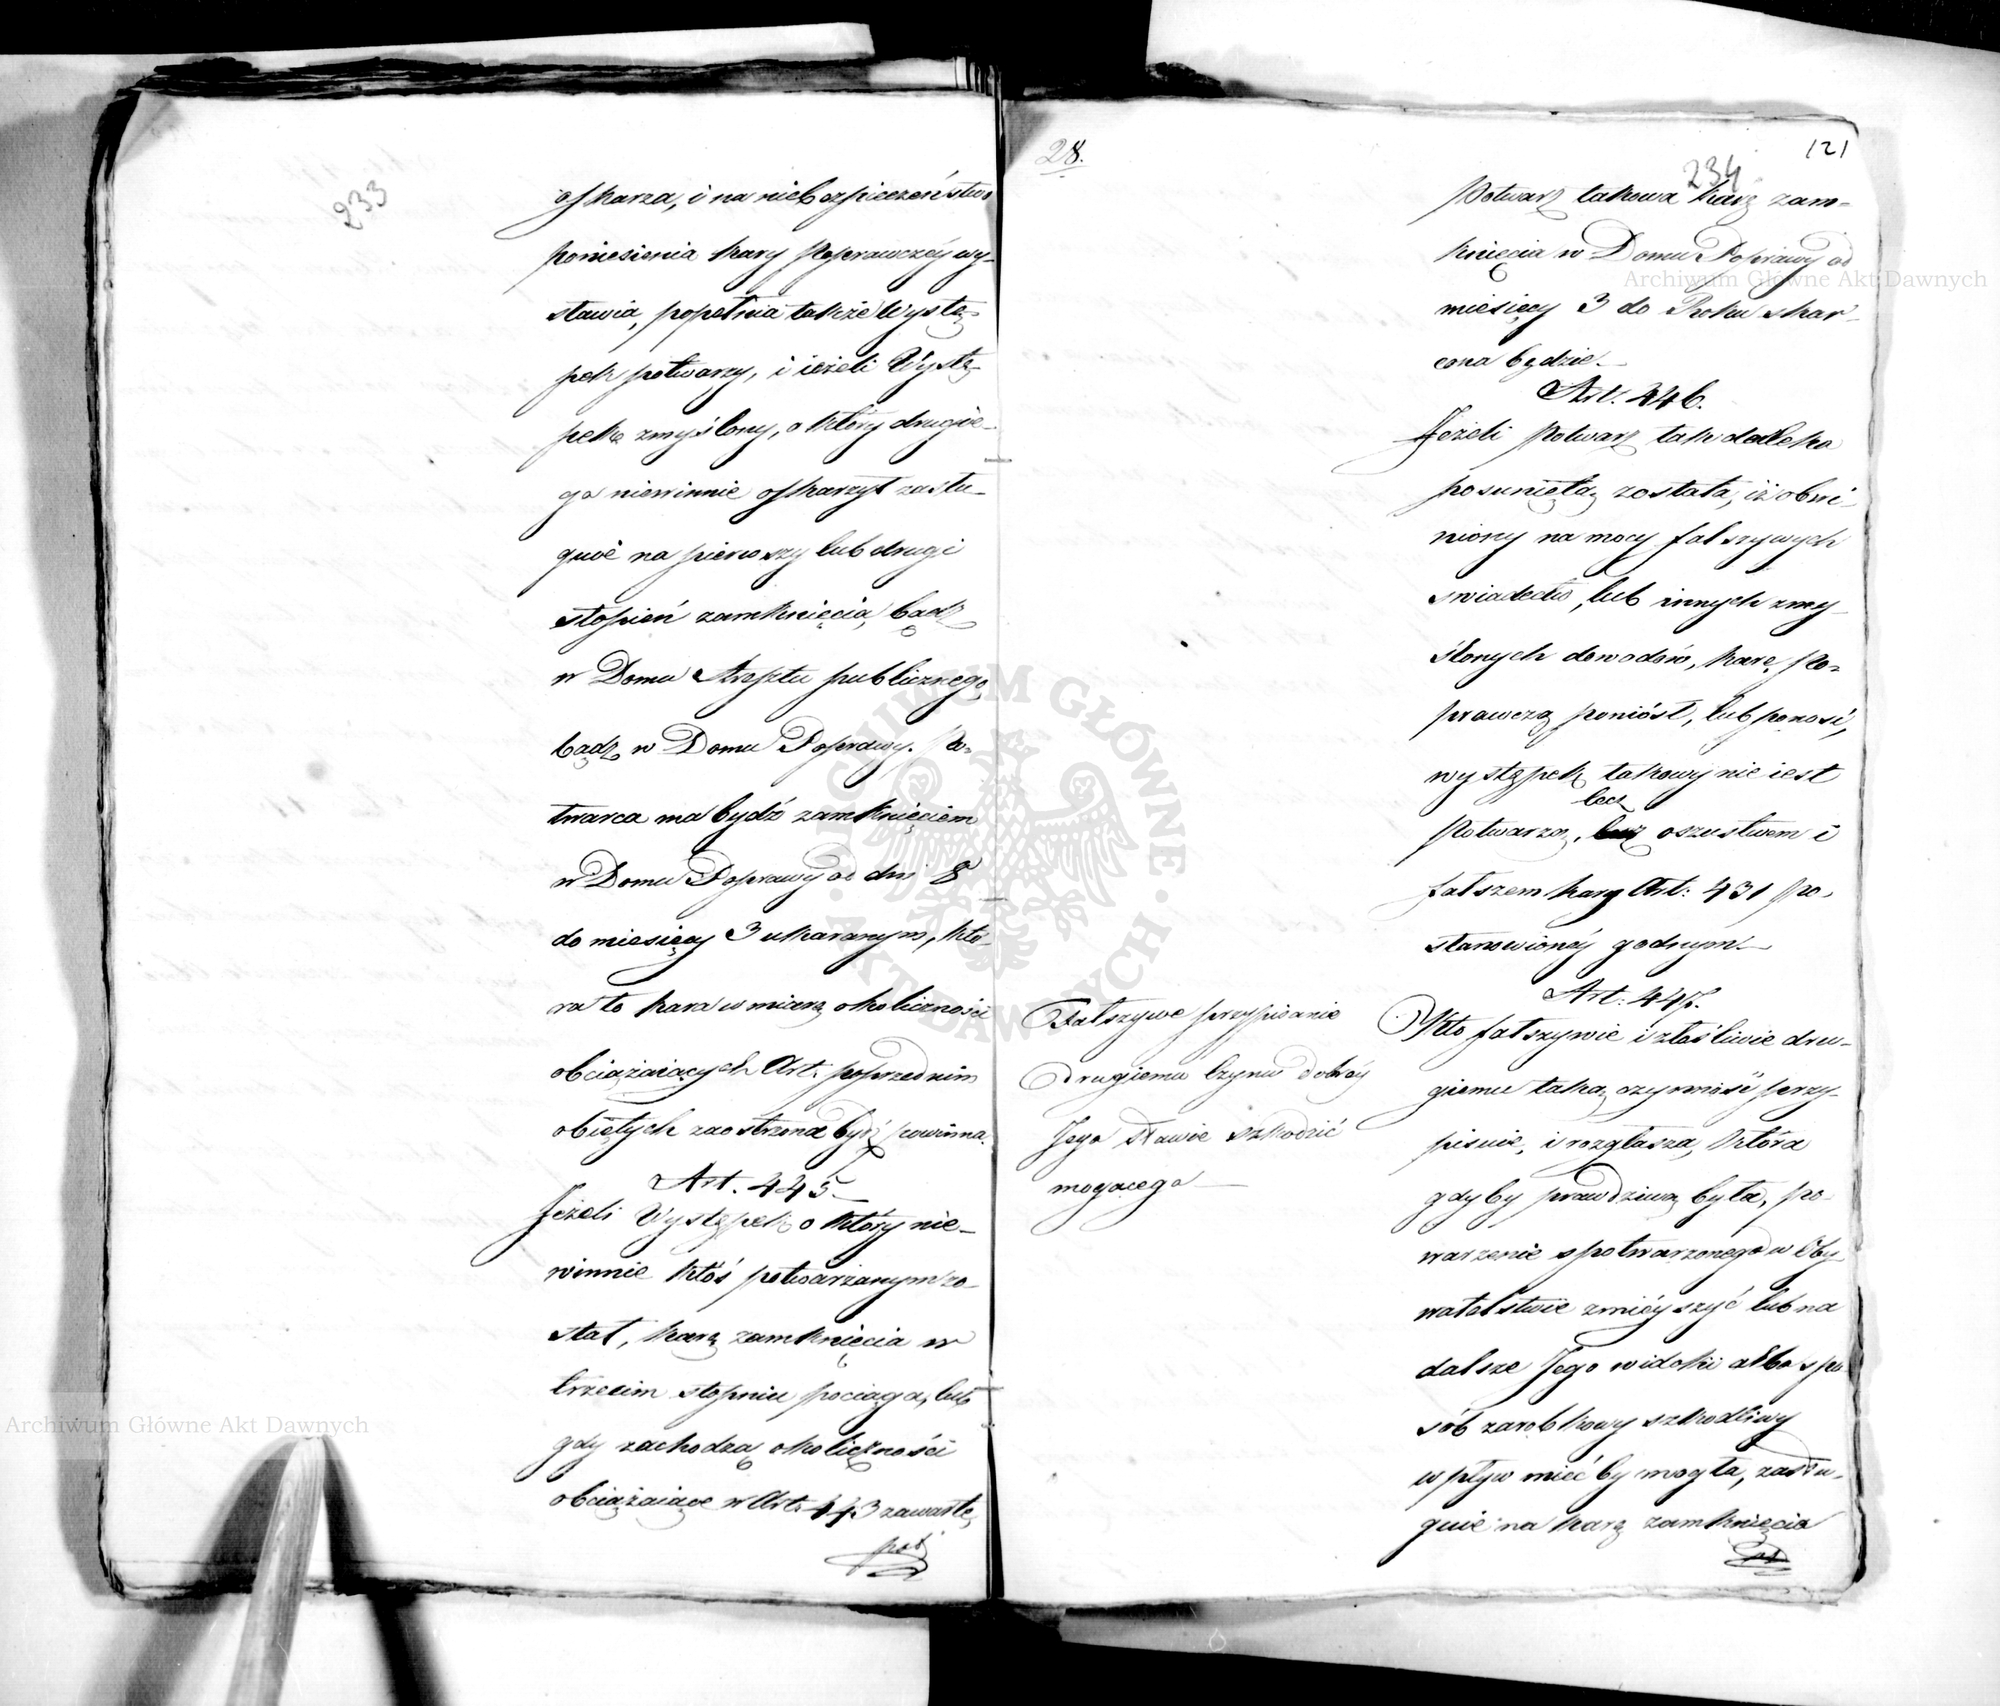 233
oskarza, i na niebezpieczeństwo
poniesienia kary Poprawczéy wy-
stawia, popełnia także Wystę-
pek potwarzy, i ieżeli Wystę-
pek zmyślony, o który drugie-
go niewinnie oskarzył zasłu-
guie na pierwszy lub drugi
stopień zamknięcia, bądz
w Domu Aresztu publicznego,
bądz w Domu Poprawy. Po-
twarca ma bydź zamknięciem
w Domu Poprawy od dni 8
do miesięcy 3 ukaranym, któ-
ra to kara w miarę okoliczności
obciążaiących Art: poprzednim
obiętych zaostrzona bydź powinna.
Art. 445.
Jeżeli Występek o który nie-
winnie ktoś potwarzanym zo-
stał, karę zamknięcia w
trzecim stopniu pociąga, lub
gdy zachodzą okoliczności
obciążaiące w Art: 443 zawarte,
pot
28.
234
121
Potwarz takowa karą zam-
knięcia w Domu Poprawy od
miesięcy 3 do Roku skar-
cona będzie.
Art. 446.
Jeżeli Potwarz tak daleko
posuniętą została, iż obwi-
niony na mocy fałszywych
swiadectw, lub innych zmy-
ślonych dowodów, karę Po-
prawczą poniósł, lub ponosi,
występek takowy nie iest
lecz
Potwarzą, oszustwem i
fałszem kary Art: 431 po-
stanowionéy godnym.
Art: 447.
Fałszywe przypisanie
drugiemu Czynu dobréy
Jego sławie szkodzić
mogącego
Kto fałszywie i złośliwie dru-
giemu taką czynność przy-
pisuie, i rozgłasza, która
gdyby prawdziwą była, po-
warzenie spotwarzonego w Oby-
watelstwie zmnieyszyć lub na
dalsze Jego widoki albo spo-
sób zarobkowy szkodliwy
wpływ mieć by mogła, zasłu-
guie na karę zamknięcia
Archiwum Główne Akt Dawnych
Archiwum Główne Akt Dawnych
ARCHIWUM GŁÓWNE · AKT DAWNYCH ·